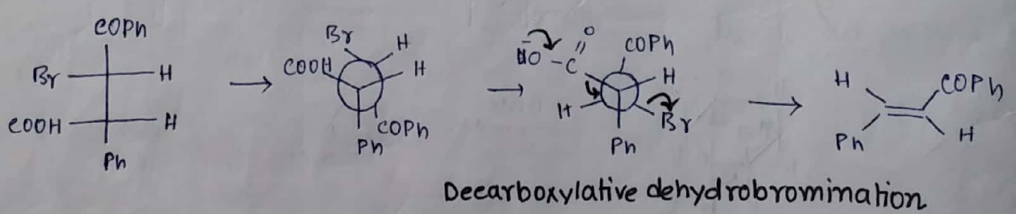 COPh
Br H
COOH H
Ph
Br H
COOH H
COPh
Ph
HO - C O COPh
H
H Br
Ph
H COPh
Ph H
Decarboxylative dehydrobromination